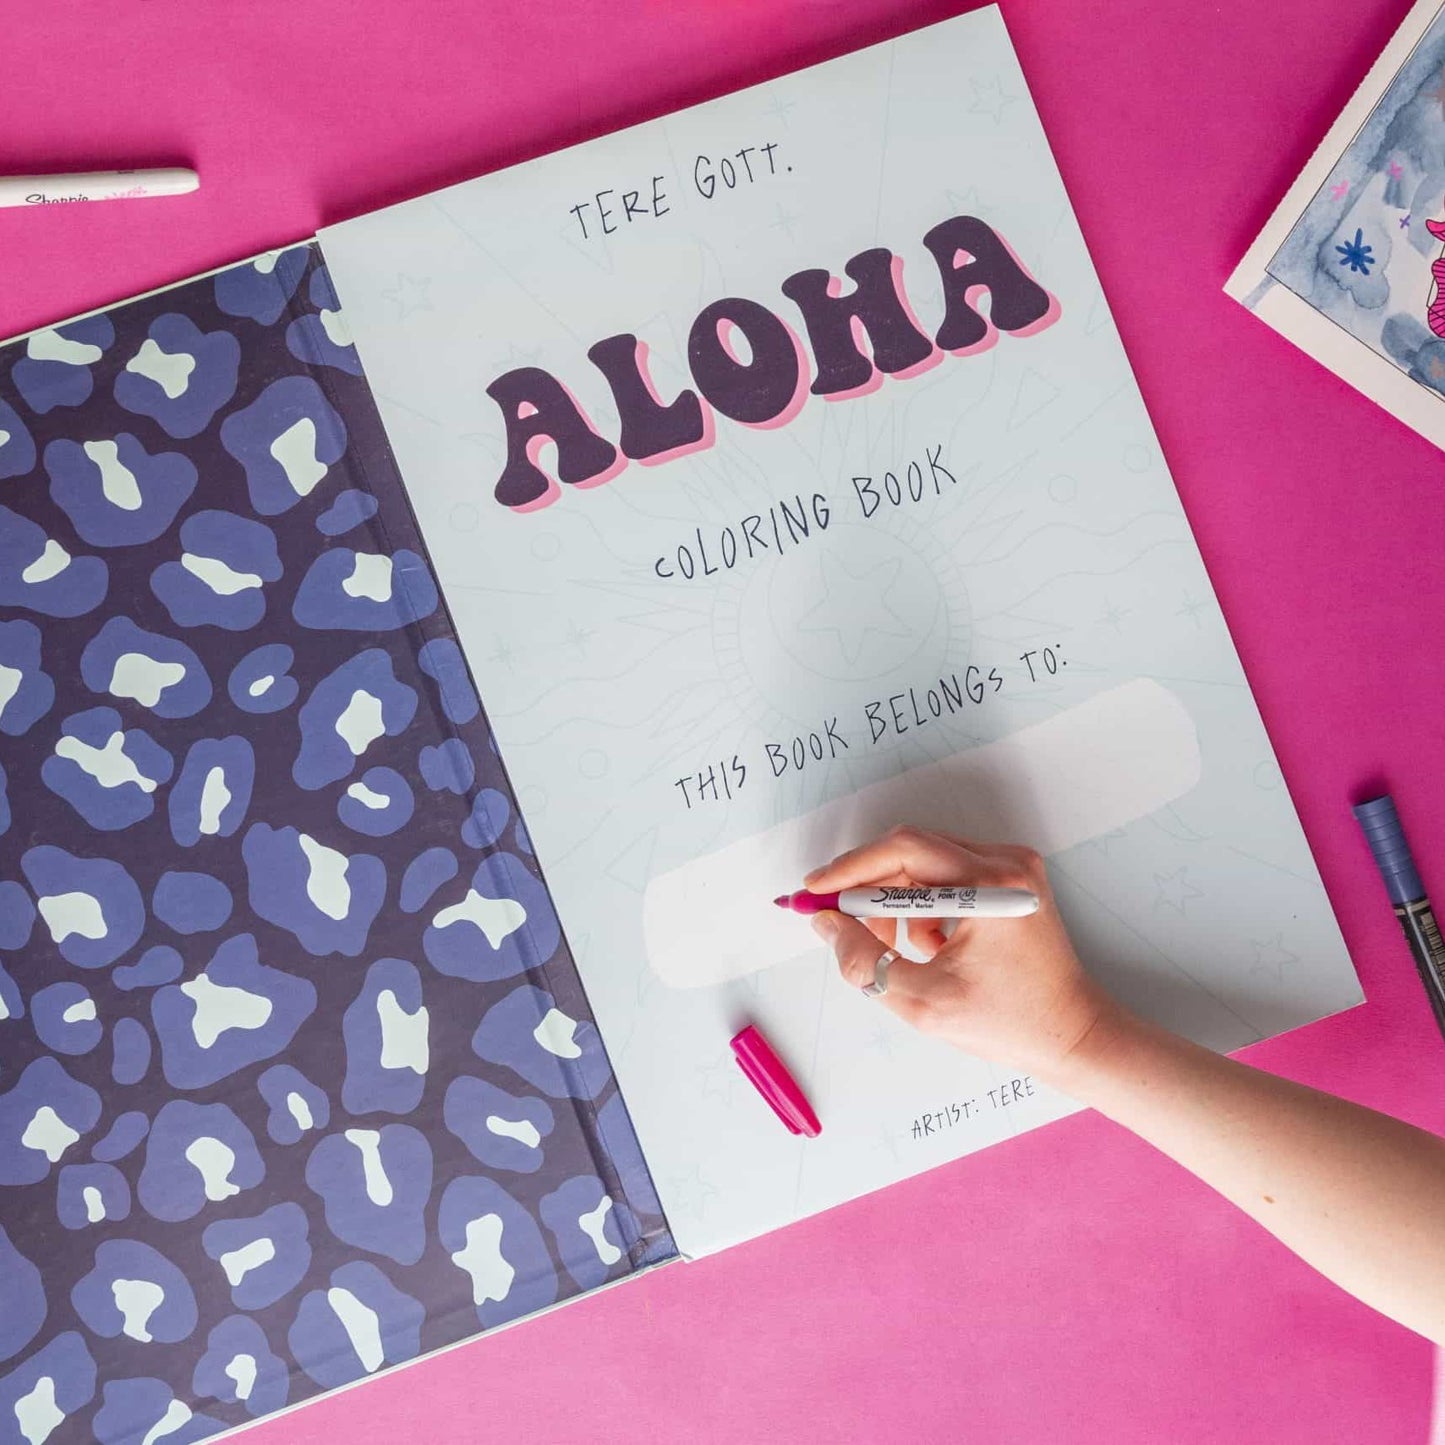 Sharpie
TERE GOTT.
ALOHA
COLORING BOOK
THIS BOOK BELONGS TO:
Sharpie. FINE POINT
Permanent Marker
ARTIST: TERE